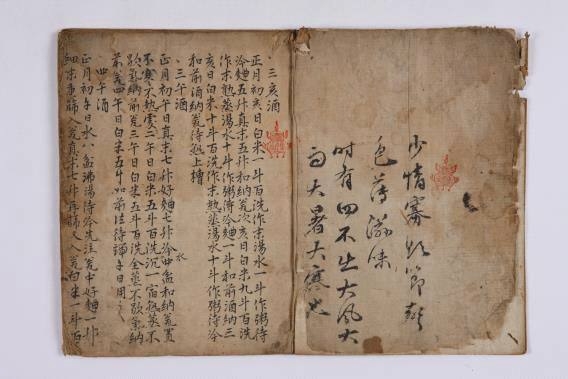 時有四不出大風大
雨大暑大寒也
三亥酒
正月初亥日白米一斗百洗作末湯水一斗作粥待
冷麯五升真末五升和納瓮次亥日白米九斗百洗
作末熟蒸湯水十斗作粥待冷麯一斗和前酒納三
亥日白米十斗百洗作末熟蒸湯水十斗作粥待冷
和前酒納瓮待熟上槽
三午酒
正月初午日真末七升好麯七升冷水四盆和納瓮置
不寒不熱處二午日白米五斗百洗沉一宿熟蒸不
歇氣納前瓮三午日白米五斗百洗全蒸不歇氣納
前瓮四午日白米五斗如前法待端午日用之
四午酒
正月初午日水八盆沸湯待冷先注瓮中好麯一升
細末重篩入瓮真末七升再篩入瓮白米一斗百